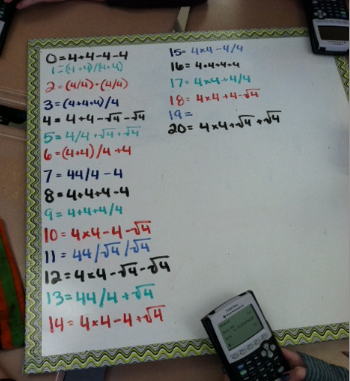 0=4+4-4-4
1=(4+4)/(4+4)
2=(4/4)+(4/4)
3=(4+4+4)/4
4=4+4-√4-√4
5=4/4+√4+√4
6=(4+4)/4+4
7=44/4-4
8=4+4+4-4
9=4+4+4/4
10=4×4-4-√4
11=44/√4/√4
12=4×4-√4-√4
13=44/4+√4
14=4×4-4+√4
15=4×4-4/4
16=4+4+4+4
17=4×4+4/4
18=4×4+4-√4
19=
20=4×4+√4+√4